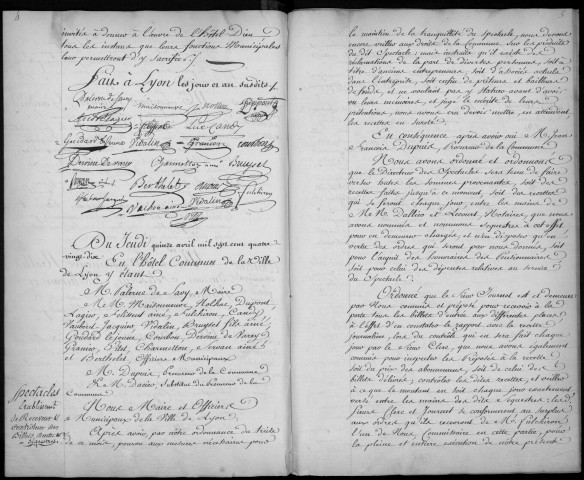 invités à donner à l'œuvre de l'hôtel Dieu
tous les instans que leurs fonctions Municipales
leur permettront d'y sacrifier.
Fait à Lyon les jour et an susdits
Palerne de Savy
maire
maisonneuve
Nolhac
Dupont
Felissent
Luc Candy
Goudard le jeune
Vidalin
Granier
Courbon
Charmetton
Bruyset
Berthelet
Fulchiron
Du Jeudi quinze avril mil sept cent quatre
vingt dix En l'hôtel Commun de la Ville
de Lyon y étant
M. Palerne de Savy, Maire
M.M. Maisonneuve, Nolhac, Dupont,
Lagier, Felissent aîné, Fulchiron, Candy,
Vauberet Jacquier, Vidalin, Bruyset fils aîné,
Goudard le jeune, Courbon, Derieu de
Granier, Pitet, Charmetton, Servan aîné
et Berthelet, Officiers Municipaux
M. Dupuis, Procureur de la Commune
Et M. Substitut du Procureur de la
Commune
Spectacles
Etablissement
de Receveur &
Contrôleur des
Billets d'entrée
Nous Maire et Officiers
Municipaux de la Ville de Lyon
Après avoir, par notre ordonnance du treize
de ce mois, pourvu aux mesures nécessaires pour
le maintien de la tranquillité du spectacle, nous devons
encore veiller aux droits de la Commune sur les produits
du dit Spectacle; mais instruits qu'il existe des
réclamations de la part de diverses personnes, soit à
titre d'anciens entrepreneurs, soit d'associés actuels
dans l'entreprise, soit enfin de prêteurs et bailleurs
de fonds, et ne voulant pas y statuer avant d'avoir
vu leurs mémoires, et jugé le mérite de leurs
prétentions, nous avons cru devoir mettre, en attendant
les recettes en sureté.
En conséquence après avoir ouï M. Jean
François Dupuis, Procureur de la Commune
Nous avons ordonné et ordonnons
que le Directeur des Spectacles sera tenu de faire
verser toutes les sommes provenantes, soit des
recettes faites jusqu'à ce moment, soit des recettes
qui se feront chaque jour, entre les mains de
M.M. Dalliez et Lecourt, Notaires, que nous
avons nommés et nommons sequestres à cet effet
pour en demeurer chargés, et n'en disposer qu'en
vertu des ordres qui seront par nous donnés, soit
pour l'acquit des honoraires des pensionnaires
soit pour celui des dépenses relatives au service
du Spectacle.
Ordonnons que le Sieur Journet est et demeure
par Nous commis et préposé pour recevoir à la
porte tous les billets d'entrée aux différentes places
à l'effet d'en constater le rapport avec la recette
journalière, lors du contrôle qui en sera fait chaque
jour par le Sieur que nous avons également
commis pour inspecter les Préposés à la recette
soit du prix des abonnemens, soit de celui des
billets délivrés; contrôler les dites recettes, et veiller
à ce que le montant en soit chaque jour exactement
versé entre les mains des dits Sequestres; les d.
Sieurs et Journet se conformant au surplus
aux ordres qu'ils recevront de M. Fulchiron
l'un de Nous, Commissaire en cette partie, pour
la pleine et entière exécution de notre présente